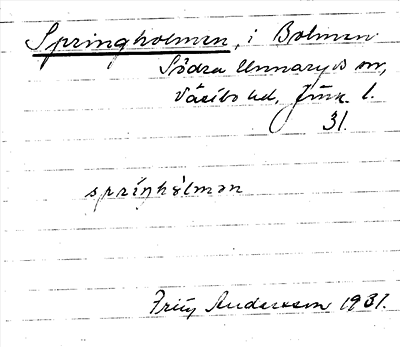 Springholmen, i Bolmen
Södra Unnaryds sn,
Västbo hd, Jönk. l.
31.
spríŋhȯlmən
Fritz Andersson 1931.